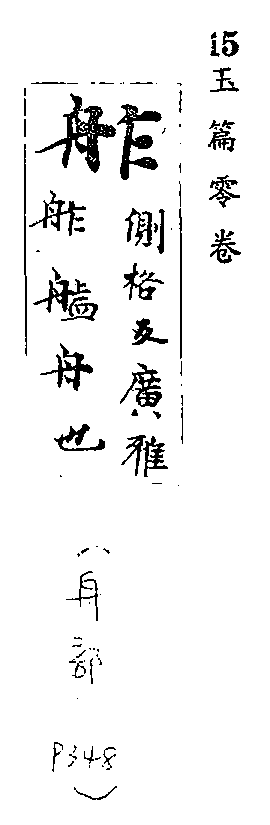 15玉篇零卷
舴
側格反廣雅
舴艋舟也
(舟部 P348)